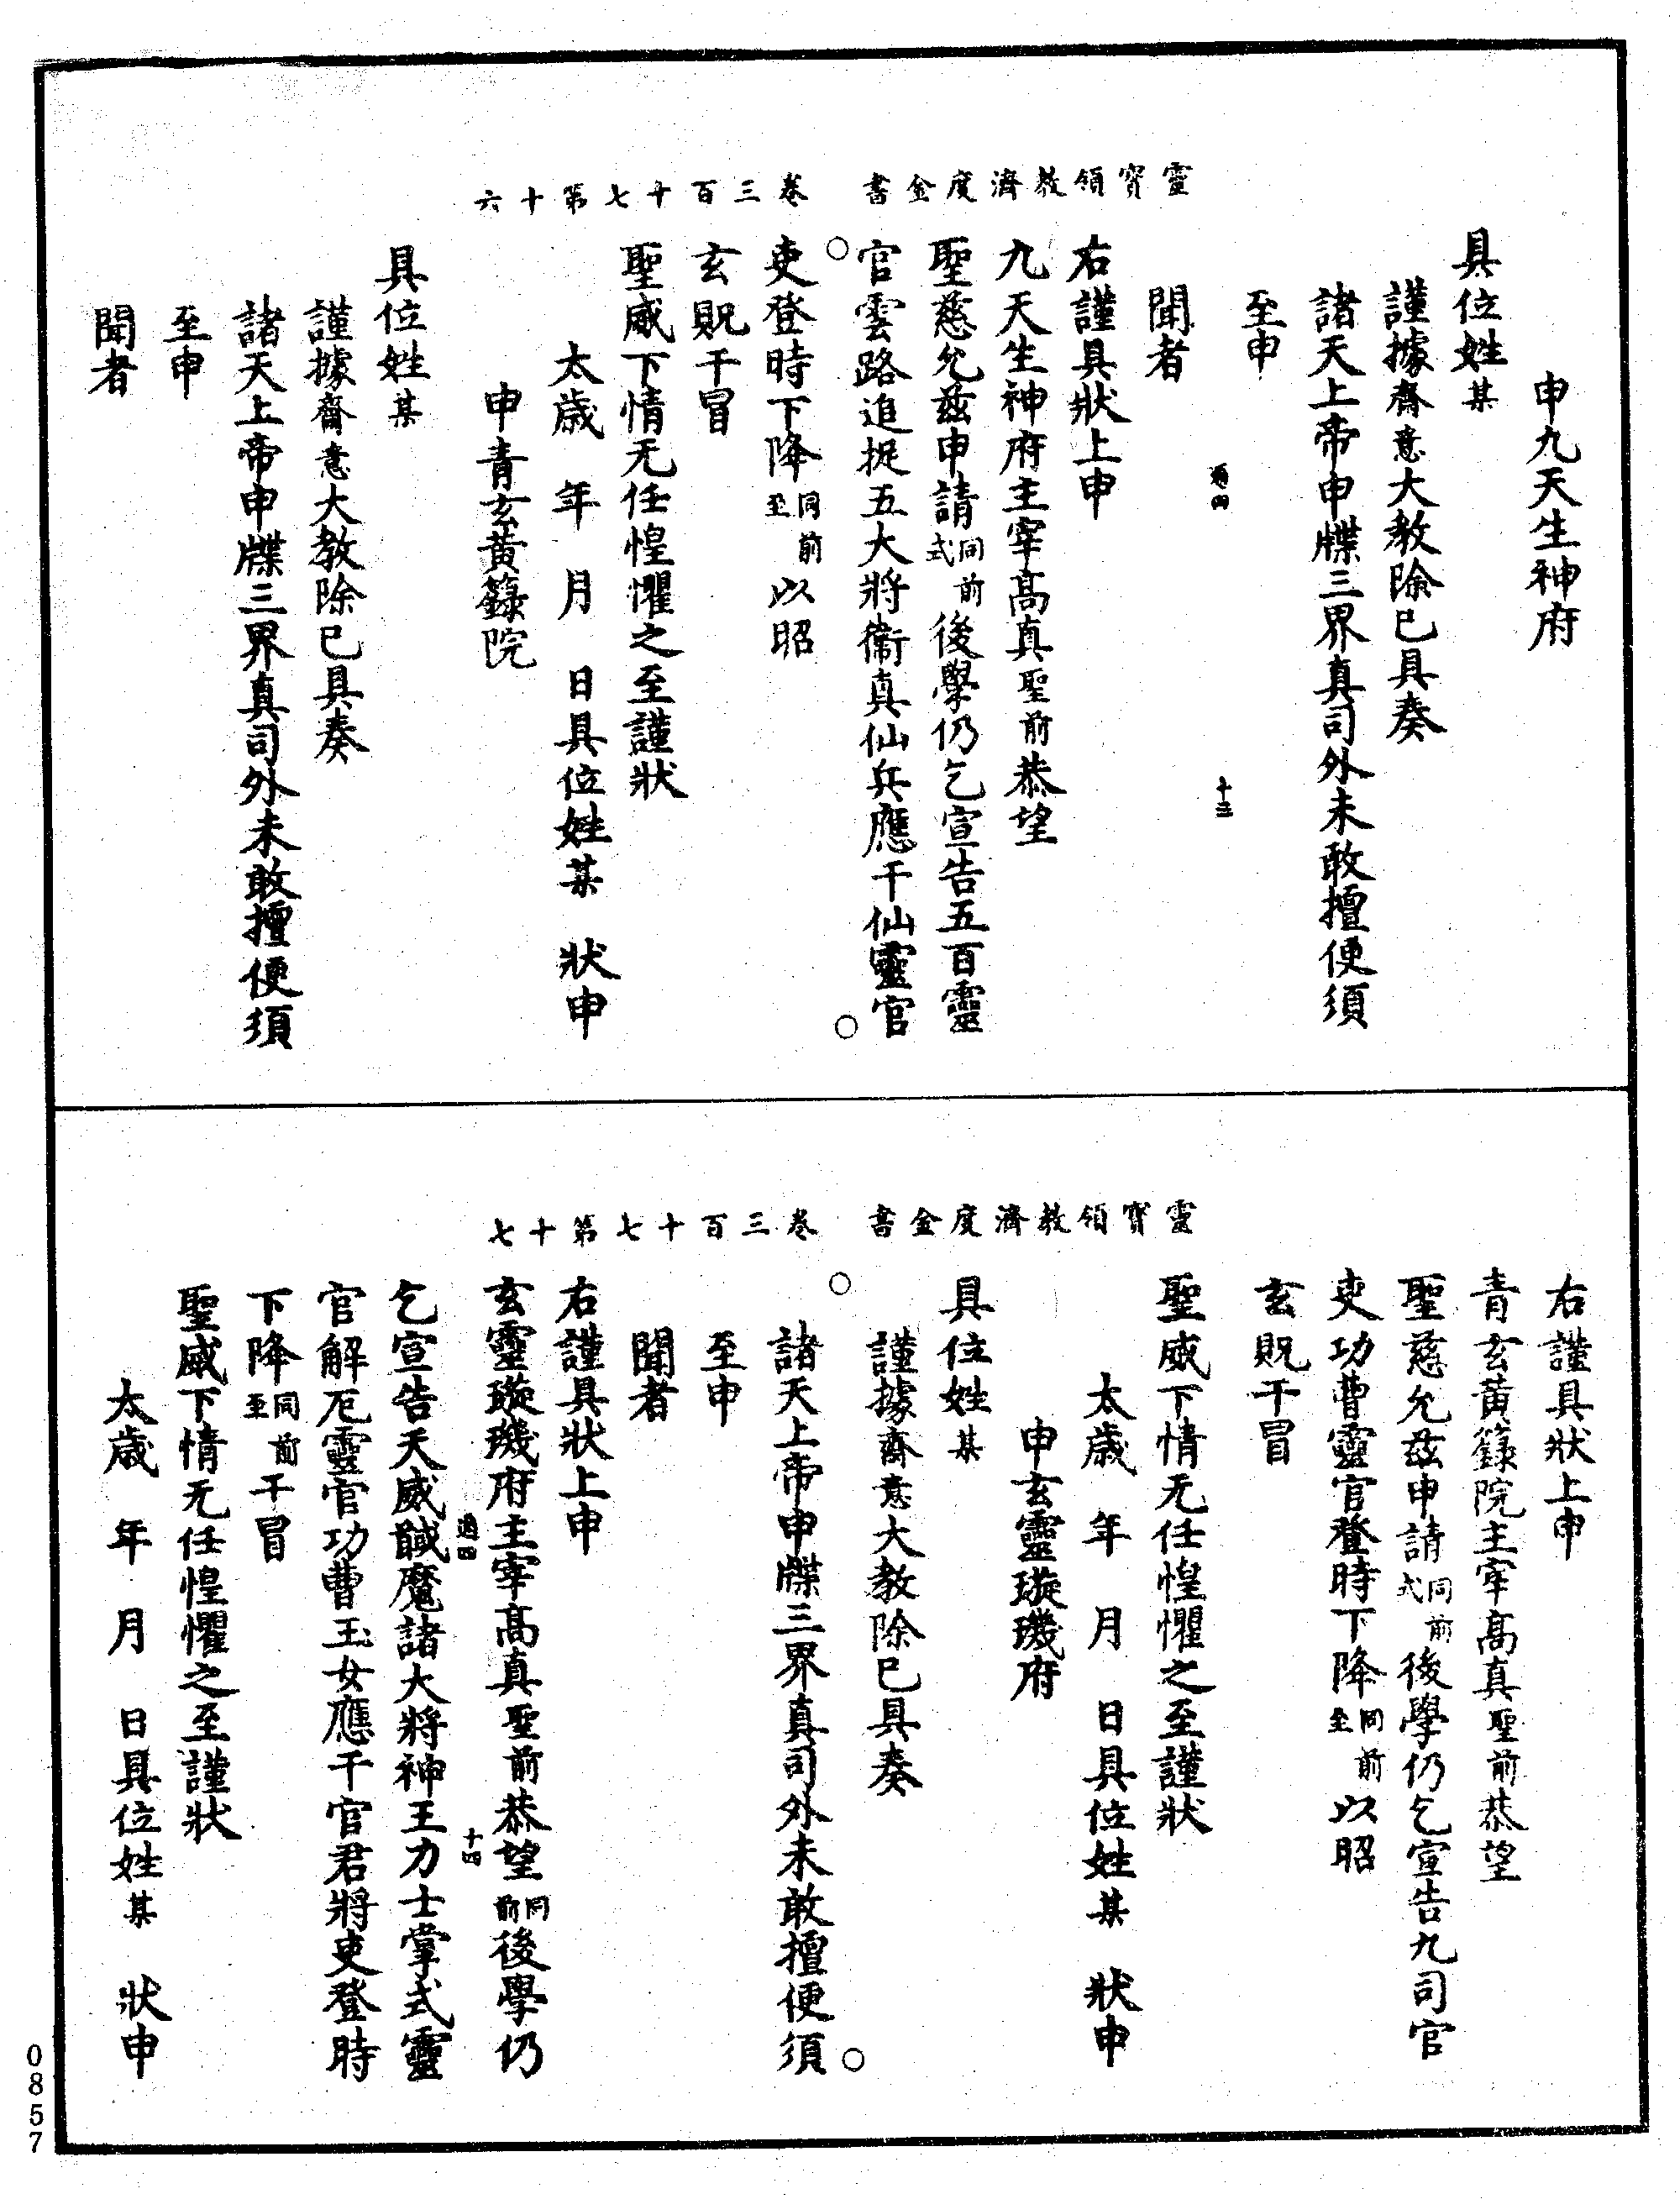 靈寶領教濟度金書　卷三百十七第十六
申九天生神府
具位姓某
謹據齋意大教除已具奏
諸天上帝申牒三界真司外未敢擅便須
至申
通四　十三
聞者
右謹具狀上申
九天生神府主宰高真聖前恭望
聖慈允茲申請同前式後學仍乞宣告五百靈
官雲路追捉五大將衞真仙兵應干仙靈官
吏登時下降同前至以昭
玄貺干冒
聖威下情无任惶懼之至謹狀
太歲　年　月　日具位姓某　狀申
申青玄黃籙院
具位姓某
謹據齋意大教除已具奏
諸天上帝申牒三界真司外未敢擅便須
至申
聞者
靈寶領教濟度金書　卷三百十七第十七
右謹具狀上申
青玄黃籙院主宰高真聖前恭望
聖慈允茲申請同前式後學仍乞宣告九司官
吏功曹靈官登時下降同前至以昭
玄貺干冒
聖威下情无任惶懼之至謹狀
太歲　年　月　日具位姓某　狀申
申玄靈璇璣府
具位姓某
謹據齋意大教除已具奏
諸天上帝申牒三界真司外未敢擅便須
至申
聞者
右謹具狀上申
玄靈璇璣府主宰高真聖前恭望同前後學仍
通四　十四
乞宣告天威馘魔諸大將神王力士掌式靈
官解厄靈官功曹玉女應干官君將吏登時
下降同前至干冒
聖威下情无任惶懼之至謹狀
太歲　年　月　日具位姓某　狀申
0857